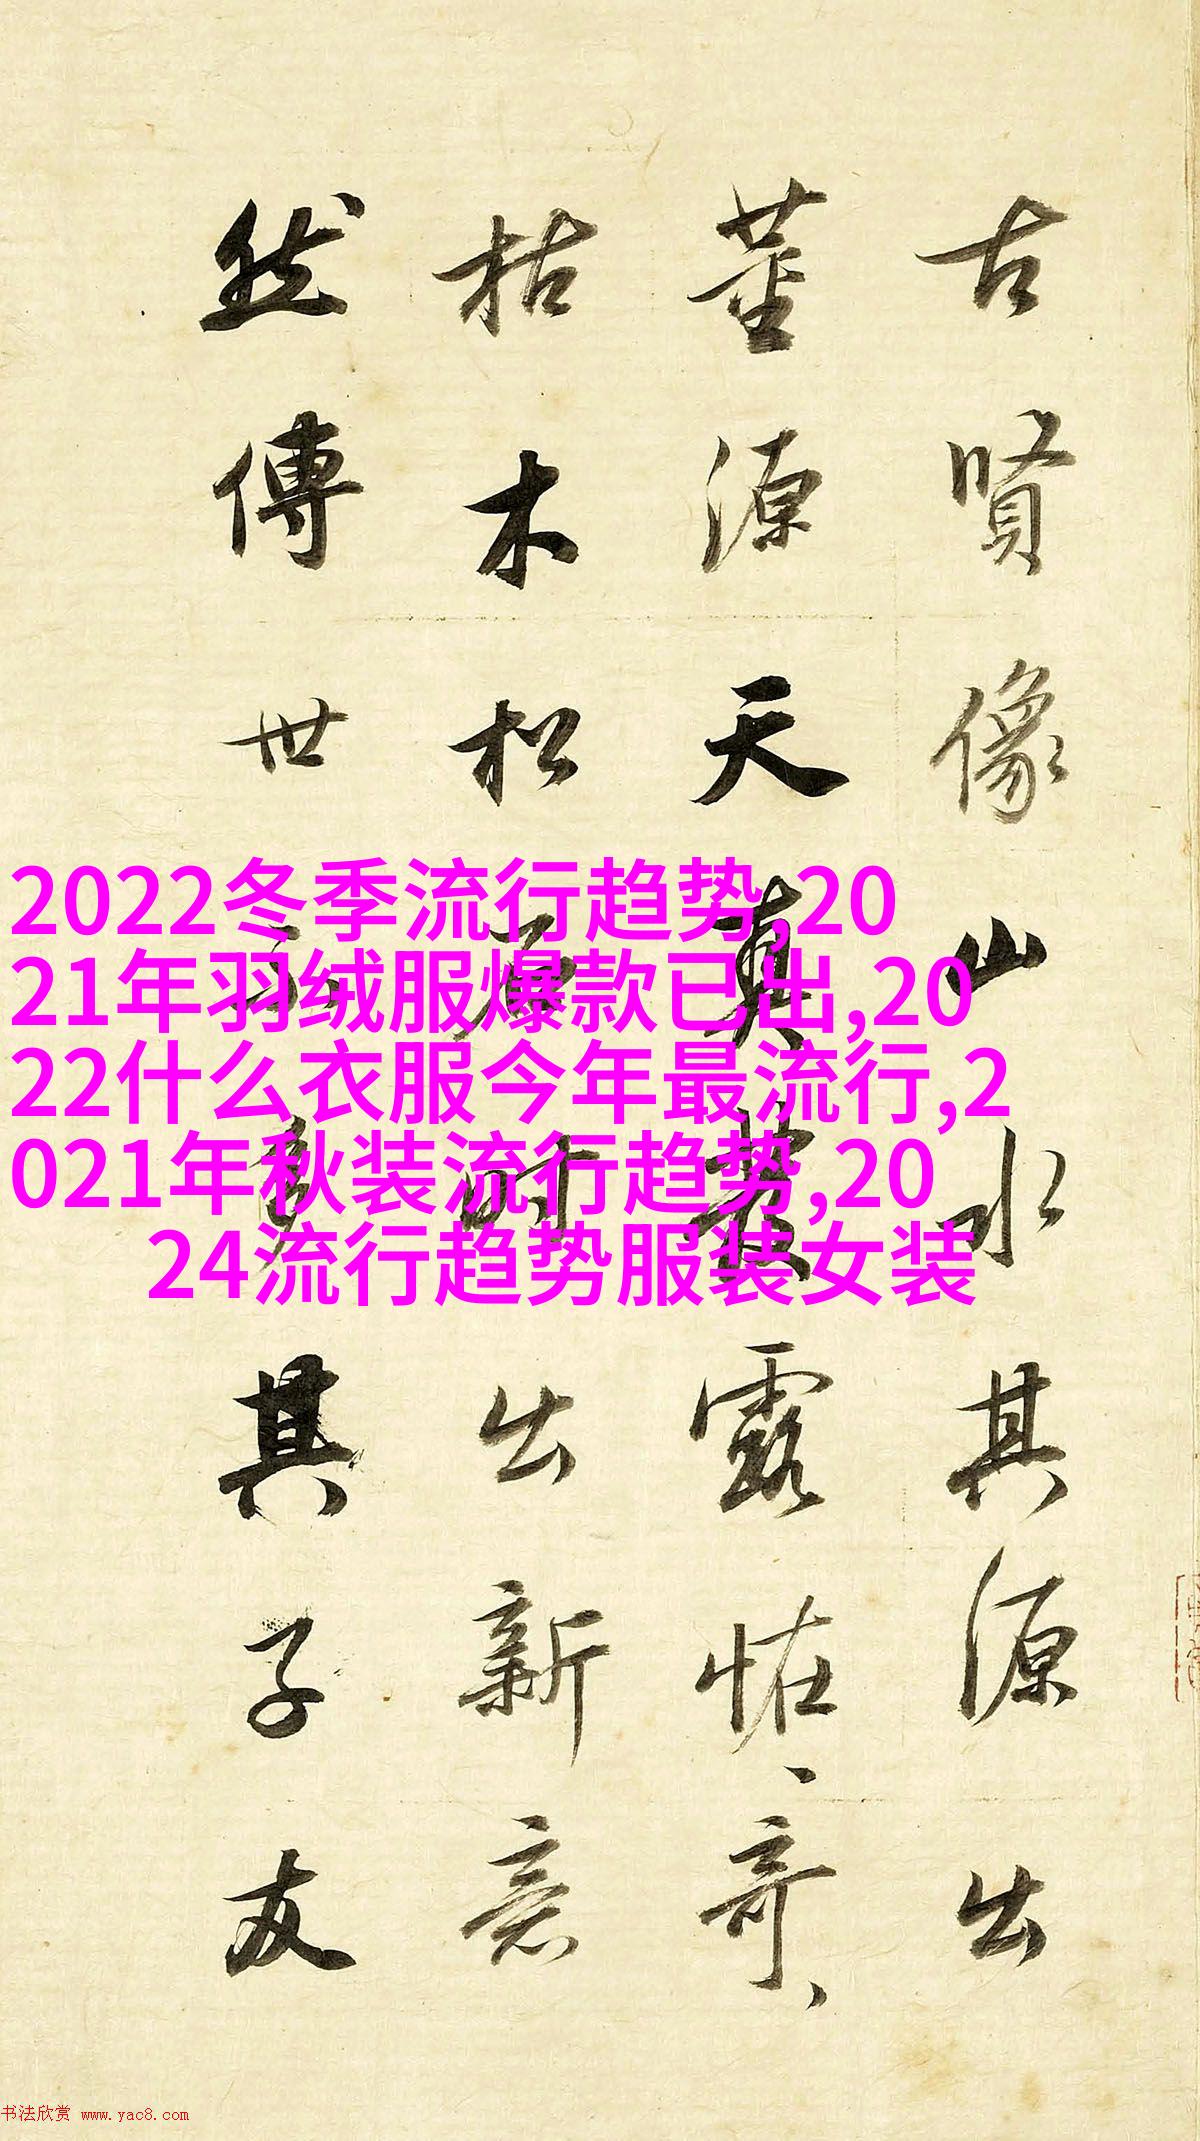 古賢像山水其源出
董源天真叢露恠奇
枯木松石時出新意
然傳世不多其子友
2022冬季流行趋势,20
21年羽绒服爆款已出,20
22什么衣服今年最流行,2
021年秋装流行趋势,20
24流行趋势服装女装
书法欣赏 www.yac8.com